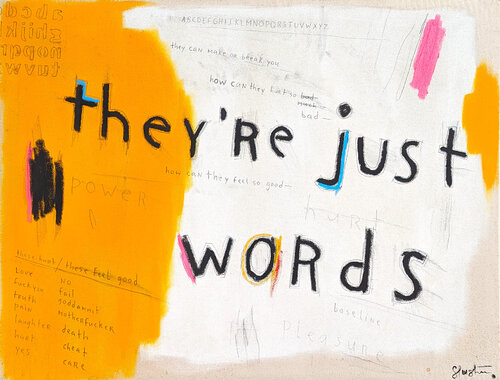 abcde
ghijkl
nopqr
tuvwx
ABCDEFGHIJKLMNOPQRSTUVWXYZ
they can make or break you
how can they hurt so bad
much
bad—
they're just
how can they feel so good—
power
hurt
words
these hurt / these feel good
love no
fuck you fail
truth goddamnit
pain motherfucker
laughter death
hurt cheat
yes care
baseline
pleasure